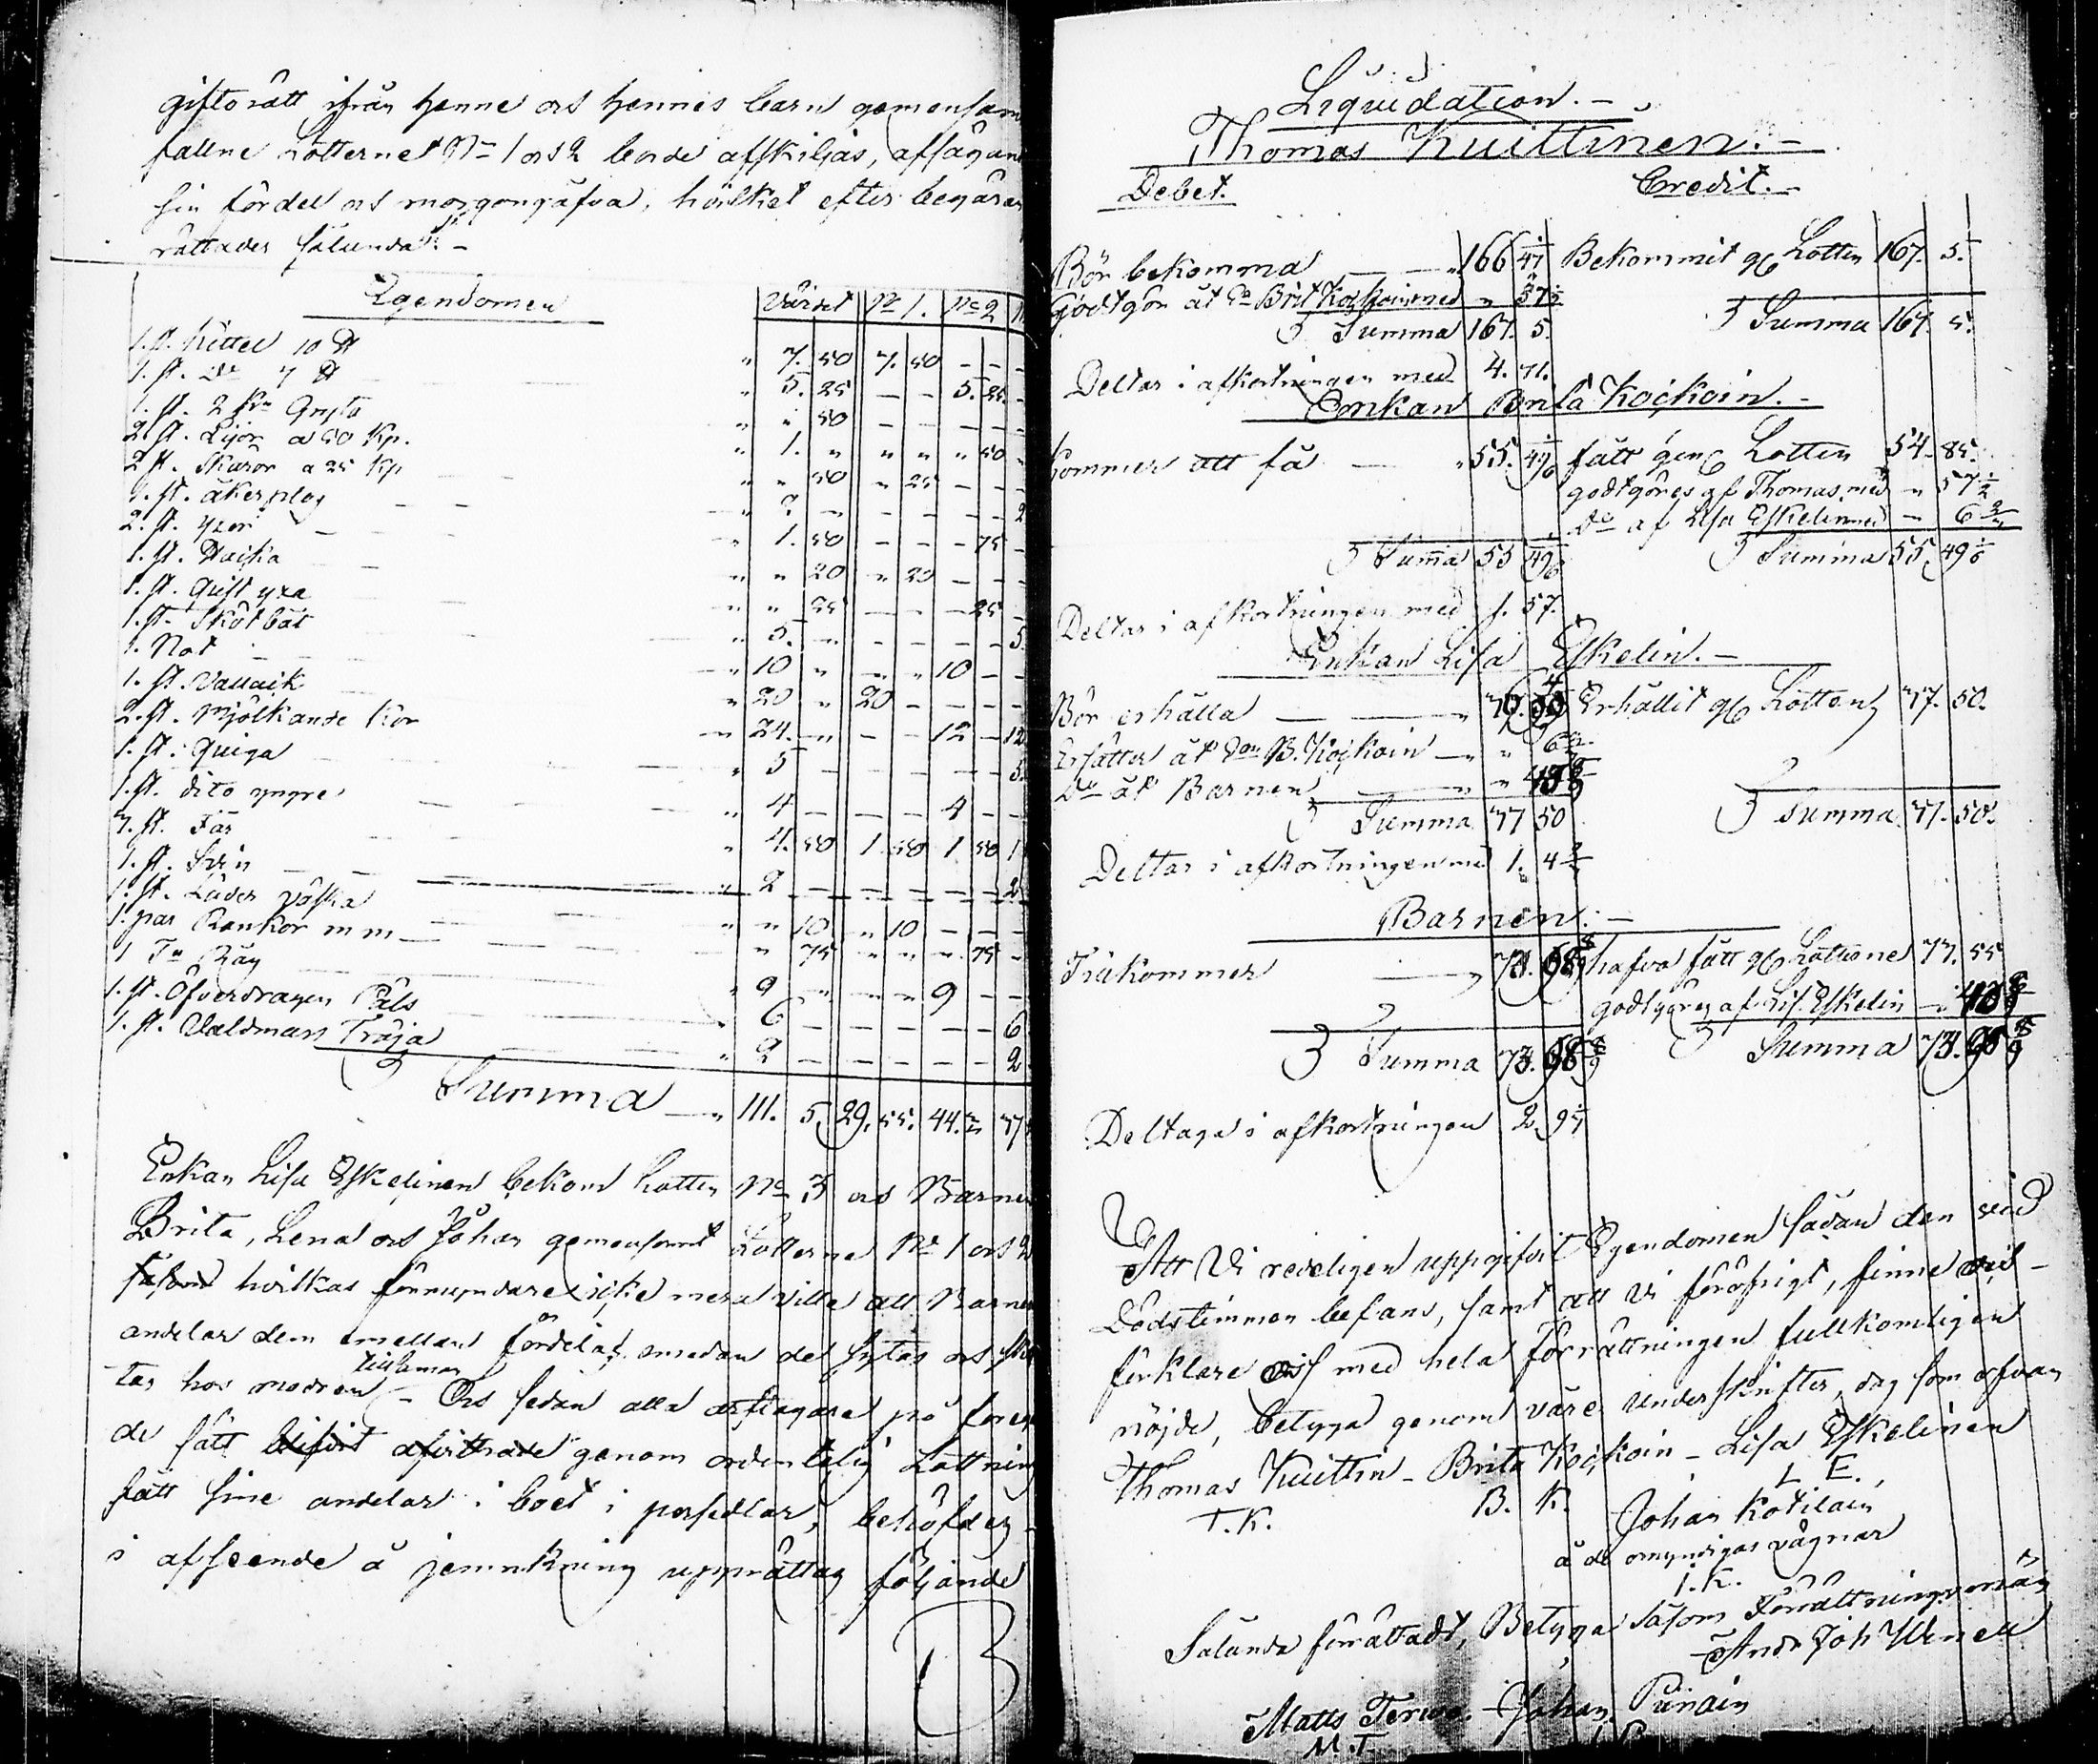 giftorätt ifrån henne och hennes barn gemensam
fallne Lotterne N° 1 och 2 borde afskiljas,
sin fördel och morgongåfva, hvilket efter begäran
rättades sålunda: -
Egendomen Värdet N° 1. N° 2
1. st. kittel 10 ℔ " 7. 50 7. 50 - - -
1. st. D° 7 ℔ " 5. 25 - - 5. 25 -
1. st. 2 Gryta " " 50 - - - -
2. st. Lijor a 50 Kp. " 1. " " " " 50 -
2 st. Skäror a 25 Kp " " 50 " 25 - - -
1. st. åkerplog " 2 - - - - 2
2. st. yxor " 1. 50 - - - 75 -
1. st. " " 20 " 20 - - -
1. st. yxa " " 25 - - - 25 -
1. st. Skötbåt " 5. " - - - - 5
1. Not " 10 " " " 10 - -
1. st. Vallack " 20 " 20 - - - -
2. st. Mjölkande Kor " 24. " - - 12 - 12
1. st. Quiga " 5 - - - - - 5
1. st. dito yngre " 4 - - - 4 - -
7. st. Får " 4. 50 1. 50 1 50 1
1. st. Svin " 2 - - - - - 2
1. st. Läder väska " " 10 " 10 - - -
1. par Rankor m m - " " 75 " " " 75 -
1 Tn Råg " 9 " - " 9 - -
1. st. Öfverdragen Päls " 6 - - - - - 6
1. st. Valdmars Tröja " 2 - - - - - 2
Summa " 111. 5. 29. 55. 44. 77
Enkan Lisa Eskelinen bekom Lotten N° 3 och Barnen
Brita, Lena och Johan gemensamt Lotterne N° 1 och 2
hvilkas förmyndare icke mera ville att Barnen
andelar dem emellan fördelas emedan de sytas och skö
tas hos modren tillsamman - Och sedan alla arftagare på
de sätt genom ordentelig Lottning
fått sine andelar i boet i persedlar, behöfdes
i afseende å jemnkning upprättas följande
Liquidation. -
Thomas Kuittinen. -
Debet. Credit. -
Bör bekomma - - " 166 47 Bekommit gm Lotten 167. 5.
Godtgör åt En Brit Kockoin med " 57 1/2
Summa 167. 5. Summa 167 5.
Deltar i afkortningen med 4. 71.
Enkan Brita Kockoin. -
Kommer att få - " 55. 49 1/6 fått genom Lotten 54. 85.
godtgöres af Thomas med " 57 1/2
D° af Lisa Eskelin med - 6 2/3
Summa 55 49 1/6 Summa 55. 49 1/6
Deltar i afkortningen med 1. 57.
Enkan Lisa Eskelin. -
Bör erhålla - - " Erhållit gm Lotten 77. 50.
Ersätter åt En B. Kockoin - " " 6 2/3
D° åt Barnen " "
Summa 77 50 Summa 77. 50.
Deltar i afkortningen med 1. 4
Barnen: -
Tilkommer - " hafva fått gm Lotterne 73. 55
godtgöres af Lis. Eskelin - "
Summa 73. Summa 73.
Deltaga i afkortningen 2. 9
Att Vi redeligen uppgifvit Egendomen sådan den vid
Dödstimman befans, samt att Vi föröfrigt, finne
förklare oss med hela Förrättningen fullkomligen
nöjde, betyga genom våre Underskrifter, dag som ofvan
Thomas Kuittin - Brita Kockoin - Lisa Eskelinen
T. K. B. K. L. E.
Johan Kotilain
å de omyndigas vägnar
I. K.
Sålunda förrättadt, Betyga såsom Förrättningsmän
Andr Joh Winell
Matts Johan Purain
M. T.